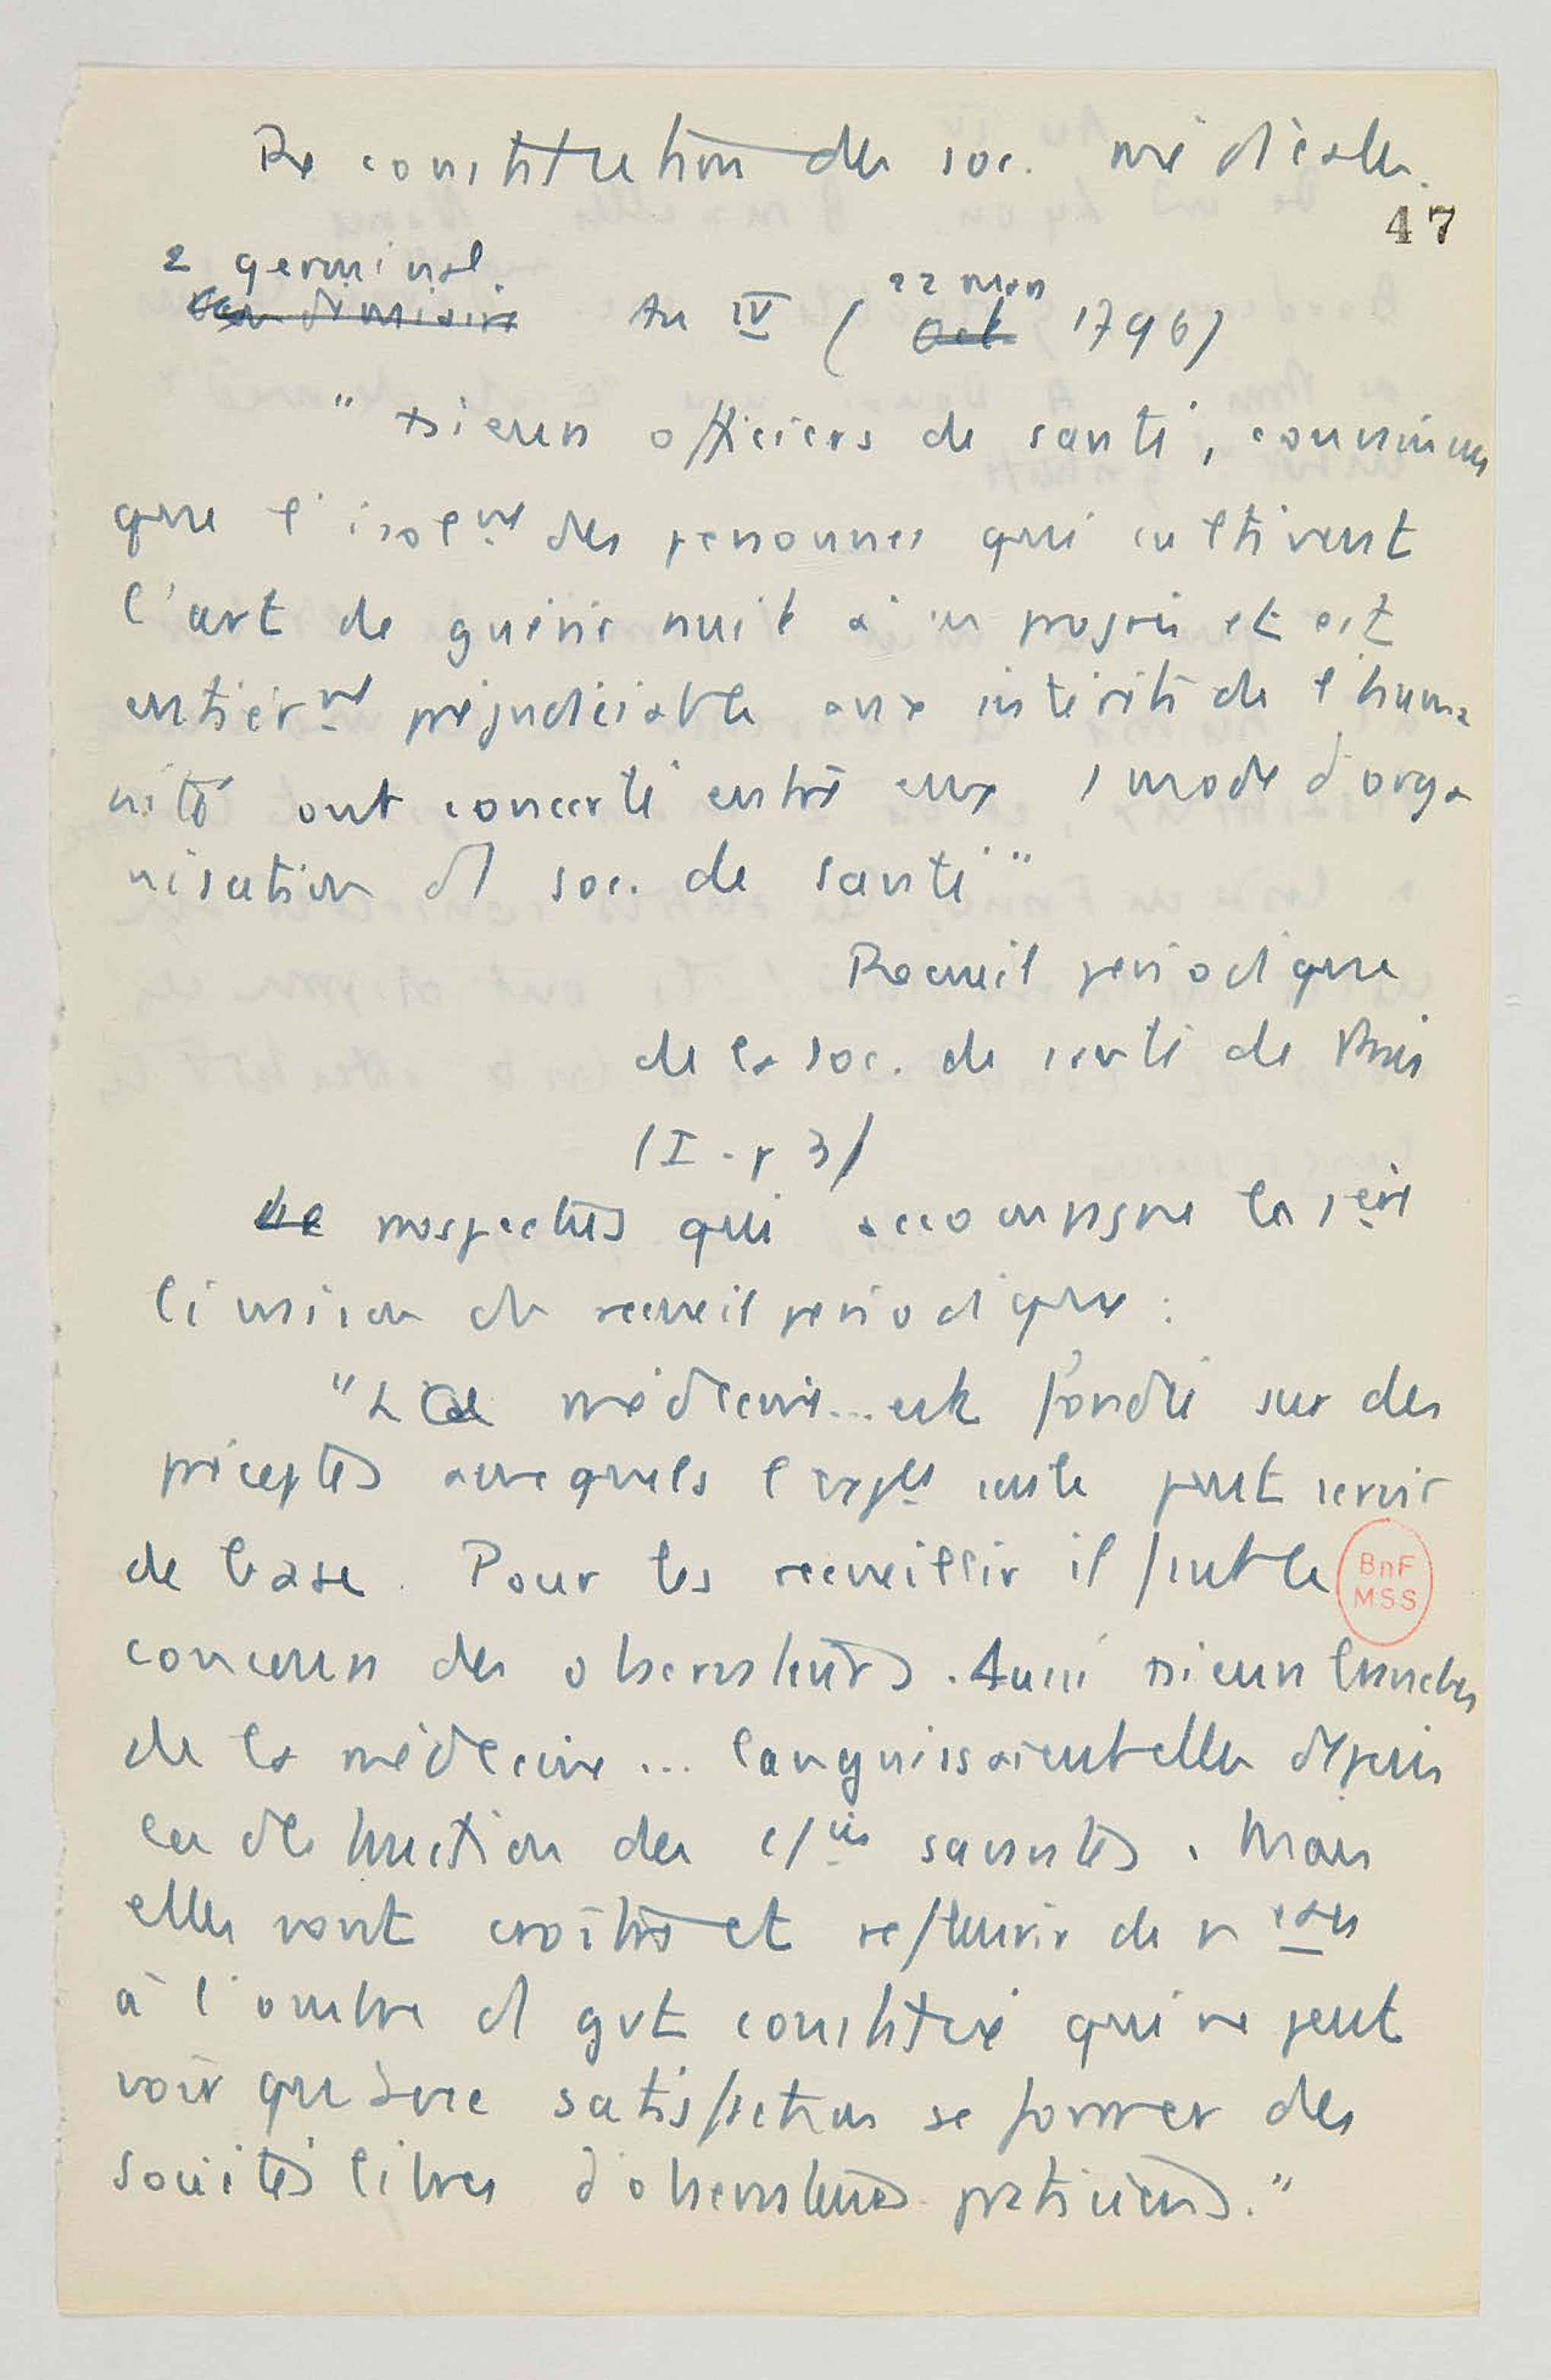 Reconstitution des soc. médicales.
47
2 germinal
An IV ( 22 mars
1796)
" +sieurs officiers de santé, convaincus
que l'isolmt des personnes qui cultivent
l'art de guérir nuit à ses progrès et est
entièrmt préjudiciable aux intérêts de l'huma
nité ont concerté entre eux 1 mode d'orga
nisation d1 soc. de santé"
Recueil périodique
de la soc. de santé de Paris
(I - p 3)
prospectus qui accompagne la 1ère
livraison du recueil périodique :
"La médecine... est fondée sur des
préceptes auxquels l'expce seule peut servir
de base. Pour les recueillir il faut le
BnF
MSS
concours des observateurs. Aussi +sieurs branches
de la médecine ... languissaient elles depuis
la destruction des cies savantes. Mais
elles vont croître et refleurir de
à l'ombre d1 gvt constitué qui ne peut
voir qu'avec satisfaction se former des
sociétés libres d'observateurs praticiens."